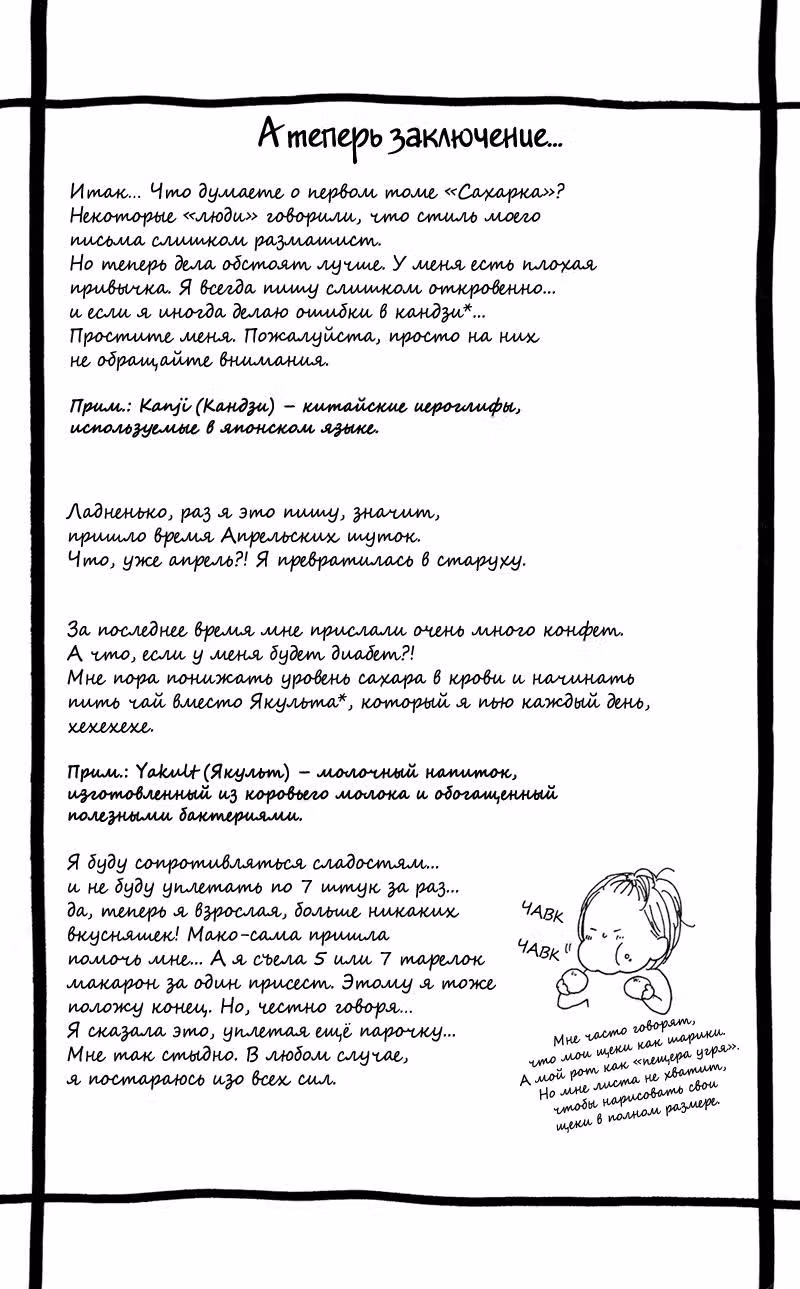 А теперь заключение...
Итак... Что думаете о первом томе «Сахарка»?
Некоторые «люди» говорили, что стиль моего
письма слишком размашист.
Но теперь дела обстоят лучше. У меня есть плохая
привычка. Я всегда пишу слишком откровенно...
и если я иногда делаю ошибки в кандзи*...
Простите меня. Пожалуйста, просто на них
не обращайте внимания.
Прим.: Kanji (Кандзи) – китайские иероглифы,
используемые в японском языке.
Ладненько, раз я это пишу, значит,
пришло время Апрельских шуток.
Что, уже апрель?! Я превратилась в старуху.
За последнее время мне прислали очень много конфет.
А что, если у меня будет диабет?!
Мне пора понижать уровень сахара в крови и начинать
пить чай вместо Якульта*, который я пью каждый день,
хехехехе.
Прим.: Yakult (Якульт) – молочный напиток,
изготовленный из коровьего молока и обогащенный
полезными бактериями.
Я буду сопротивляться сладостям...
и не буду уплетать по 7 штук за раз...
да, теперь я взрослая, больше никаких
вкусняшек! Мако-сама пришла
помочь мне... А я съела 5 или 7 тарелок
макарон за один присест. Этому я тоже
положу конец. Но, честно говоря...
Я сказала это, уплетая ещё парочку...
Мне так стыдно. В любом случае,
я постараюсь изо всех сил.
ЧАВК
ЧАВК
Мне часто говорят,
что мои щеки как шарики.
А мой рот как «пещера угря».
Но мне листа не хватит,
чтобы нарисовать свои
щеки в полном размере.